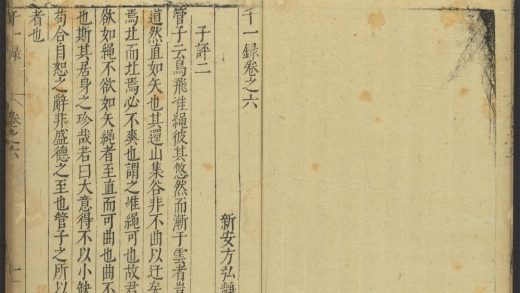 千一録卷之六
新安方弘靜
子評二
管子云鳥飛准繩彼其悠然而漸于雲者豈
道然直如矢也其還山集谷非不曲以迂矣
焉北而北焉必不爽也謂之准繩可也故君
欲如繩不欲如矢繩者至直而可曲也曲不
也斯其居身之珍哉若曰大意得不以小缺
苟合自恕之辭非盛德之至也管子之所以
者也
千一録 卷之六 一